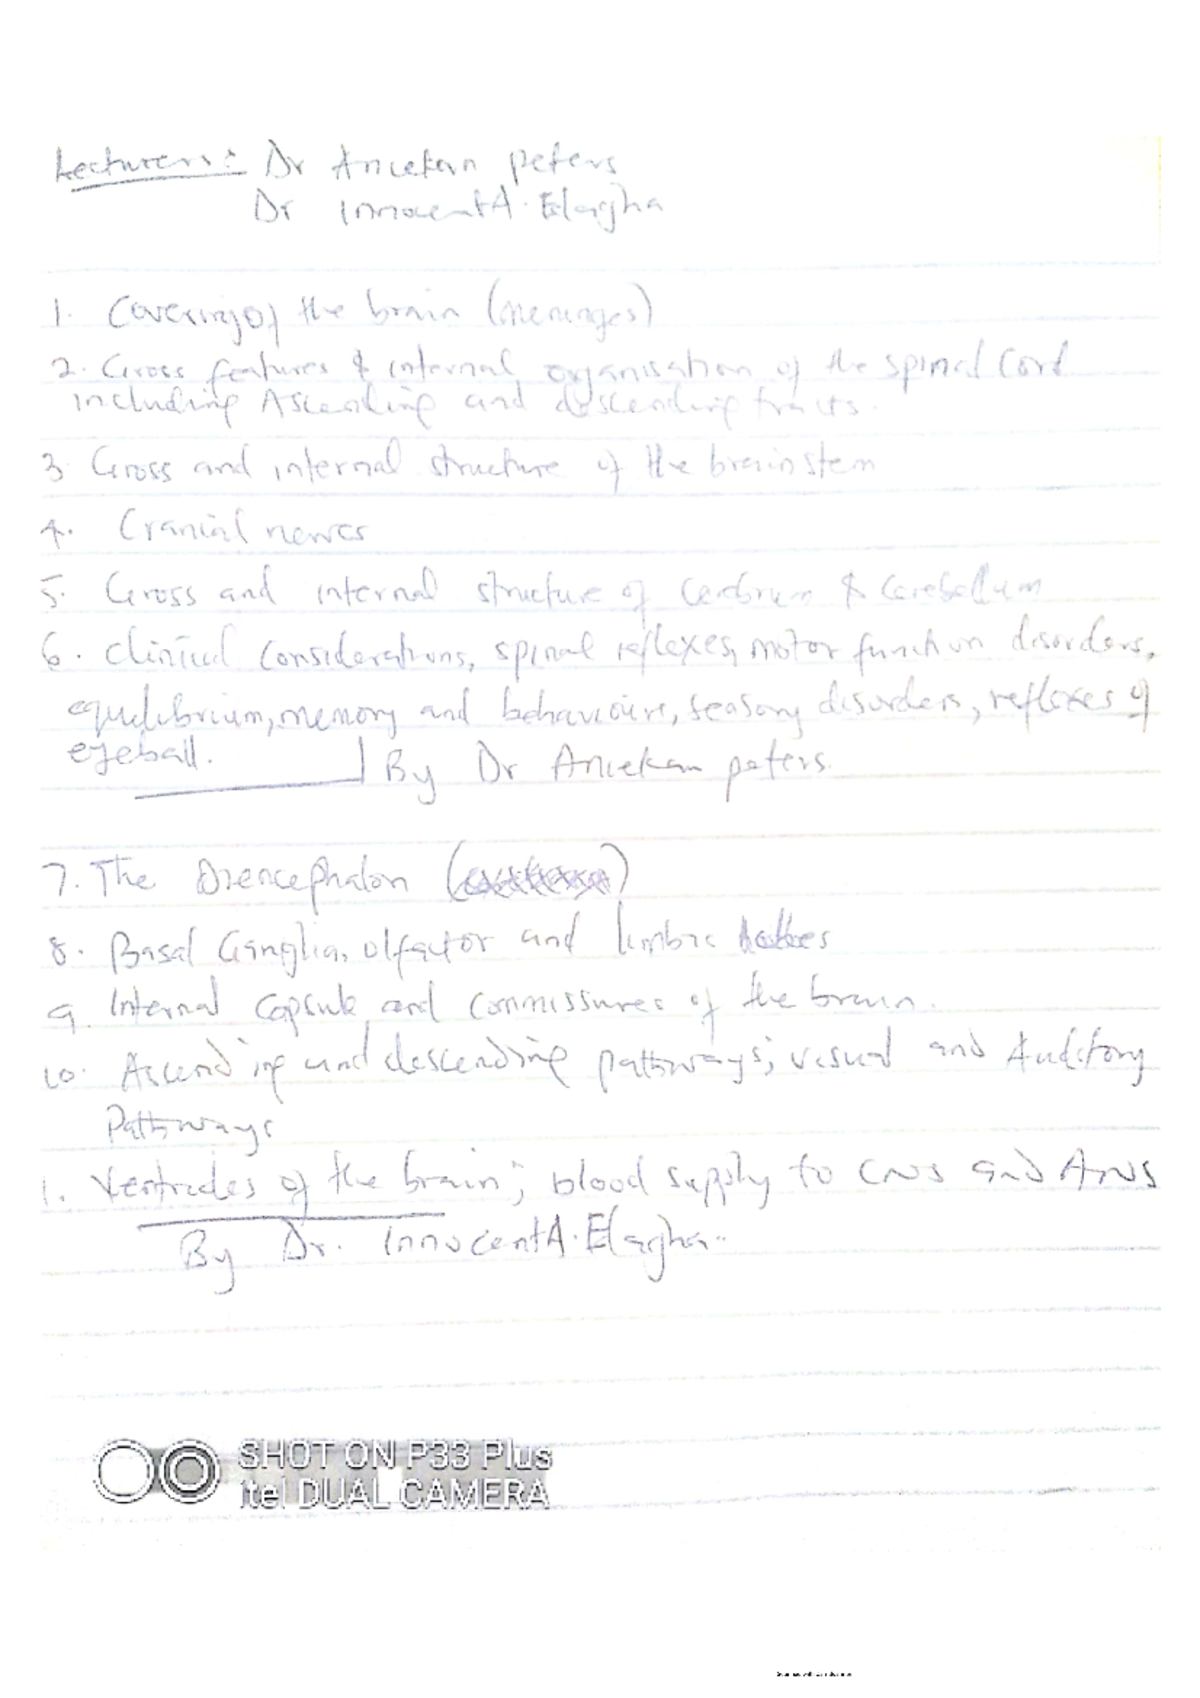 Lecturers: Dr Aniekan peters
Dr Innocent A. Edagha
1. Covering of the brain (meninges)
2. Gross features & internal organisation of the spinal Cord
including Ascending and descending tracts.
3 Gross and internal structure of the brainstem
4. Cranial nerves
5. Gross and internal structure of Cerebrum & Cerebellum
6. Clinical Considerations, spinal reflexes, motor function disorders,
equilibrium, memory and behaviour, sensory disorders, reflexes of
eyeball. By Dr Aniekan peters.
7. The Diencephalon ( )
8. Basal Ganglia, olfactor and limbic
9. Internal Capsule and Commissures of the brain.
10. Ascending and descending pathways; visual and Auditory
Pathways
1. Ventricles of the brain; blood supply to CNS and ANS
By Dr. Innocent A. Edagha..
SHOT ON P33 Plus
itel DUAL CAMERA